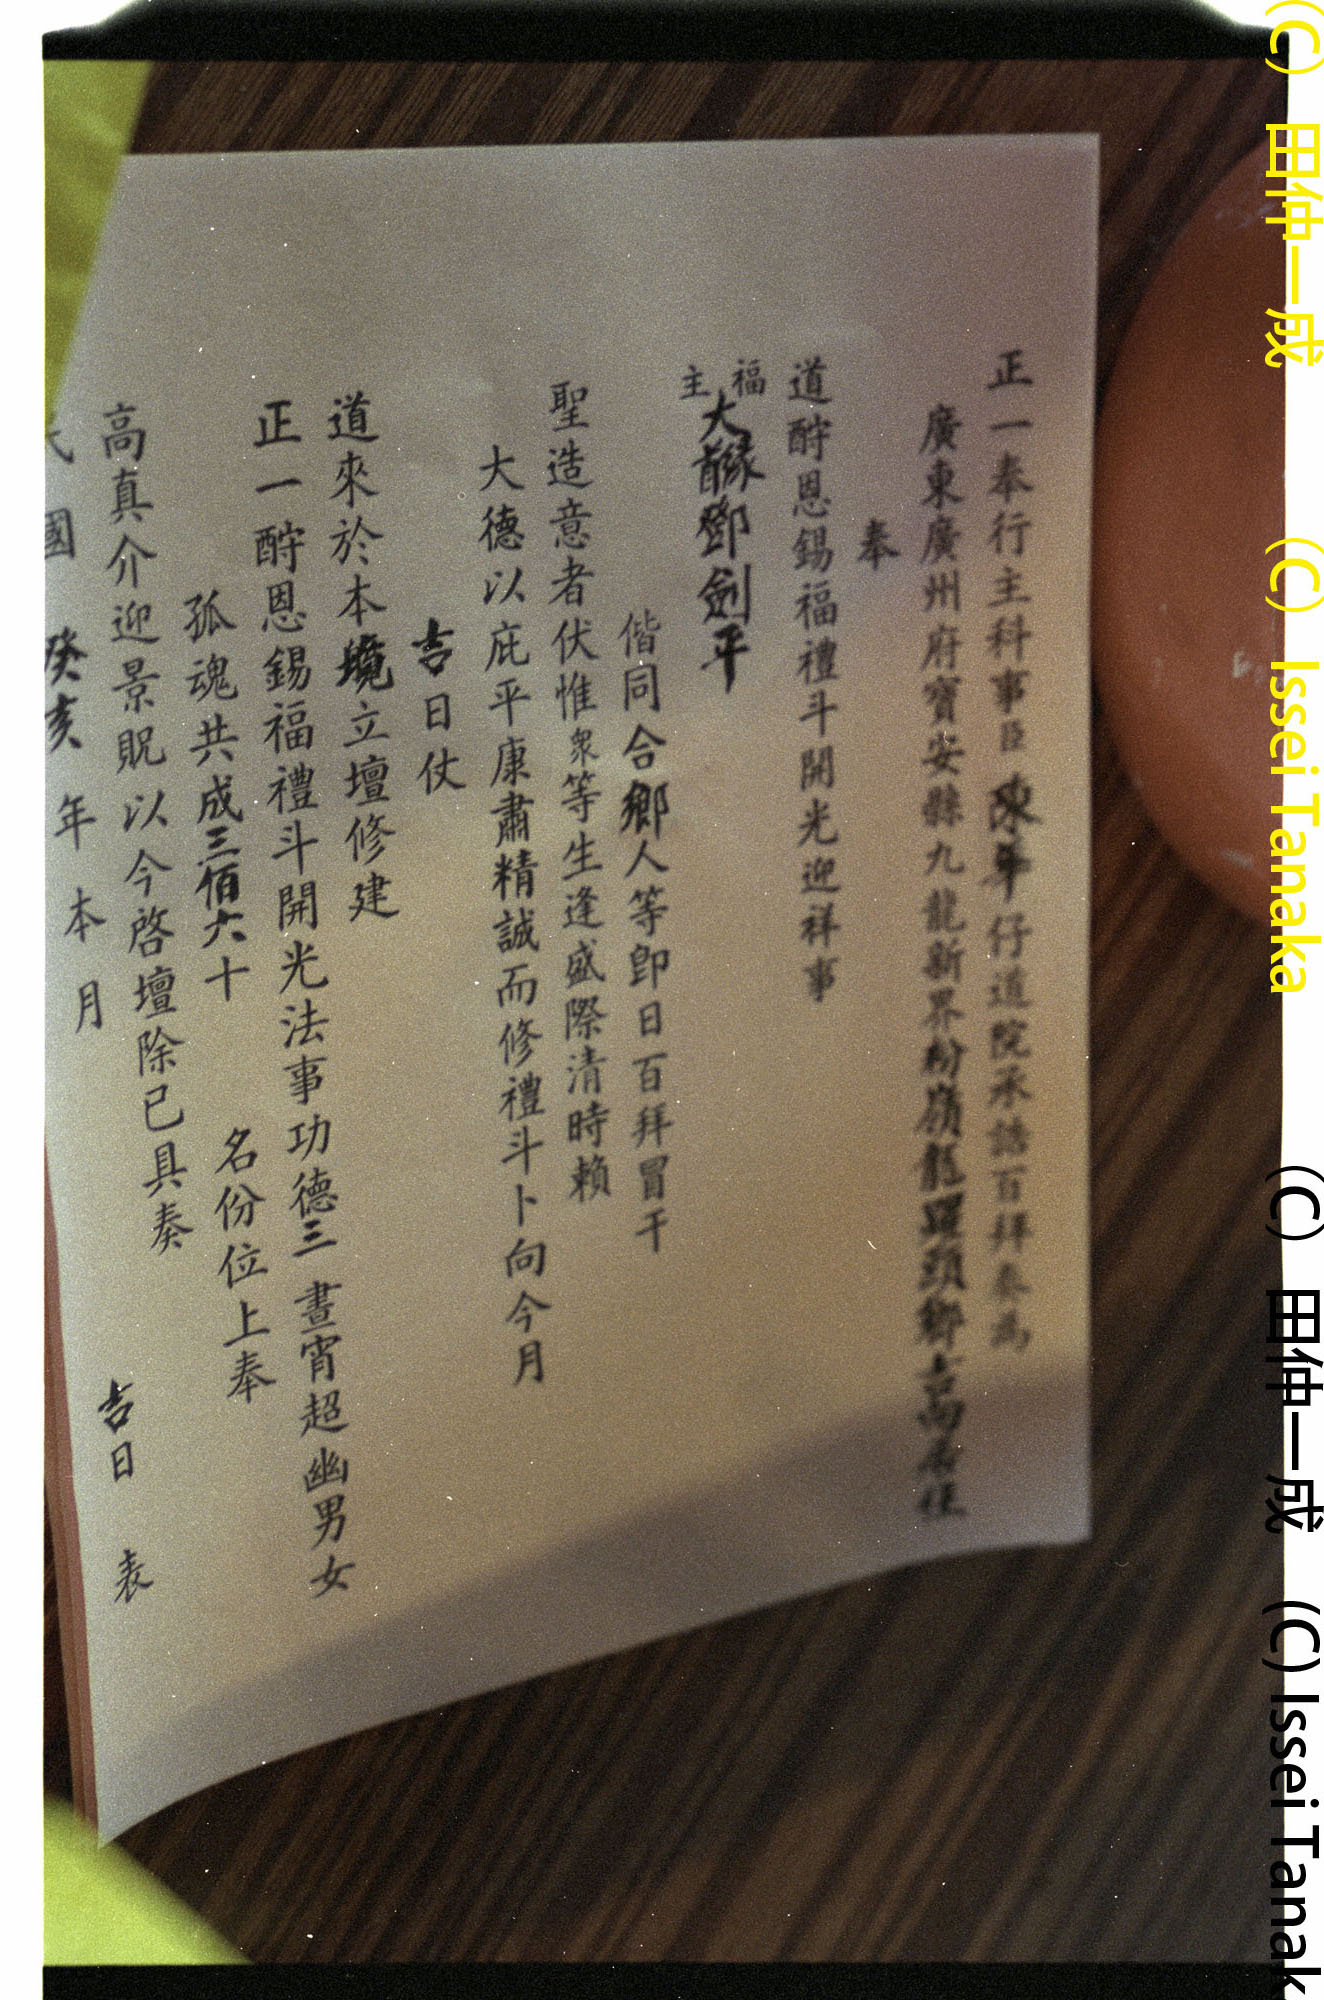 正一奉行主科事臣陳華仔道院承誥百拜奏為
廣東廣州府寶安縣九龍新界粉嶺龍躍頭鄉吉向居住
奉
道酧恩錫福禮斗開光迎祥事
福主
大鄧劍平
偕同合鄉人等即日百拜冒干
聖造意者伏惟衆等生逢盛際清時賴
大德以庇平康肅精誠而修禮斗卜向今月
吉日仗
道來於本境立壇修建
正一酧恩錫福禮斗開光法事功德三晝宵超幽男女
孤魂共成三佰六十 名份位上奉
高真介迎景貺以今啓壇除已具奏
國癸亥年本月 吉日 表
(C) 田仲一成 (C) Issei Tanaka
(C) 田仲一成 (C) Issei Tanak